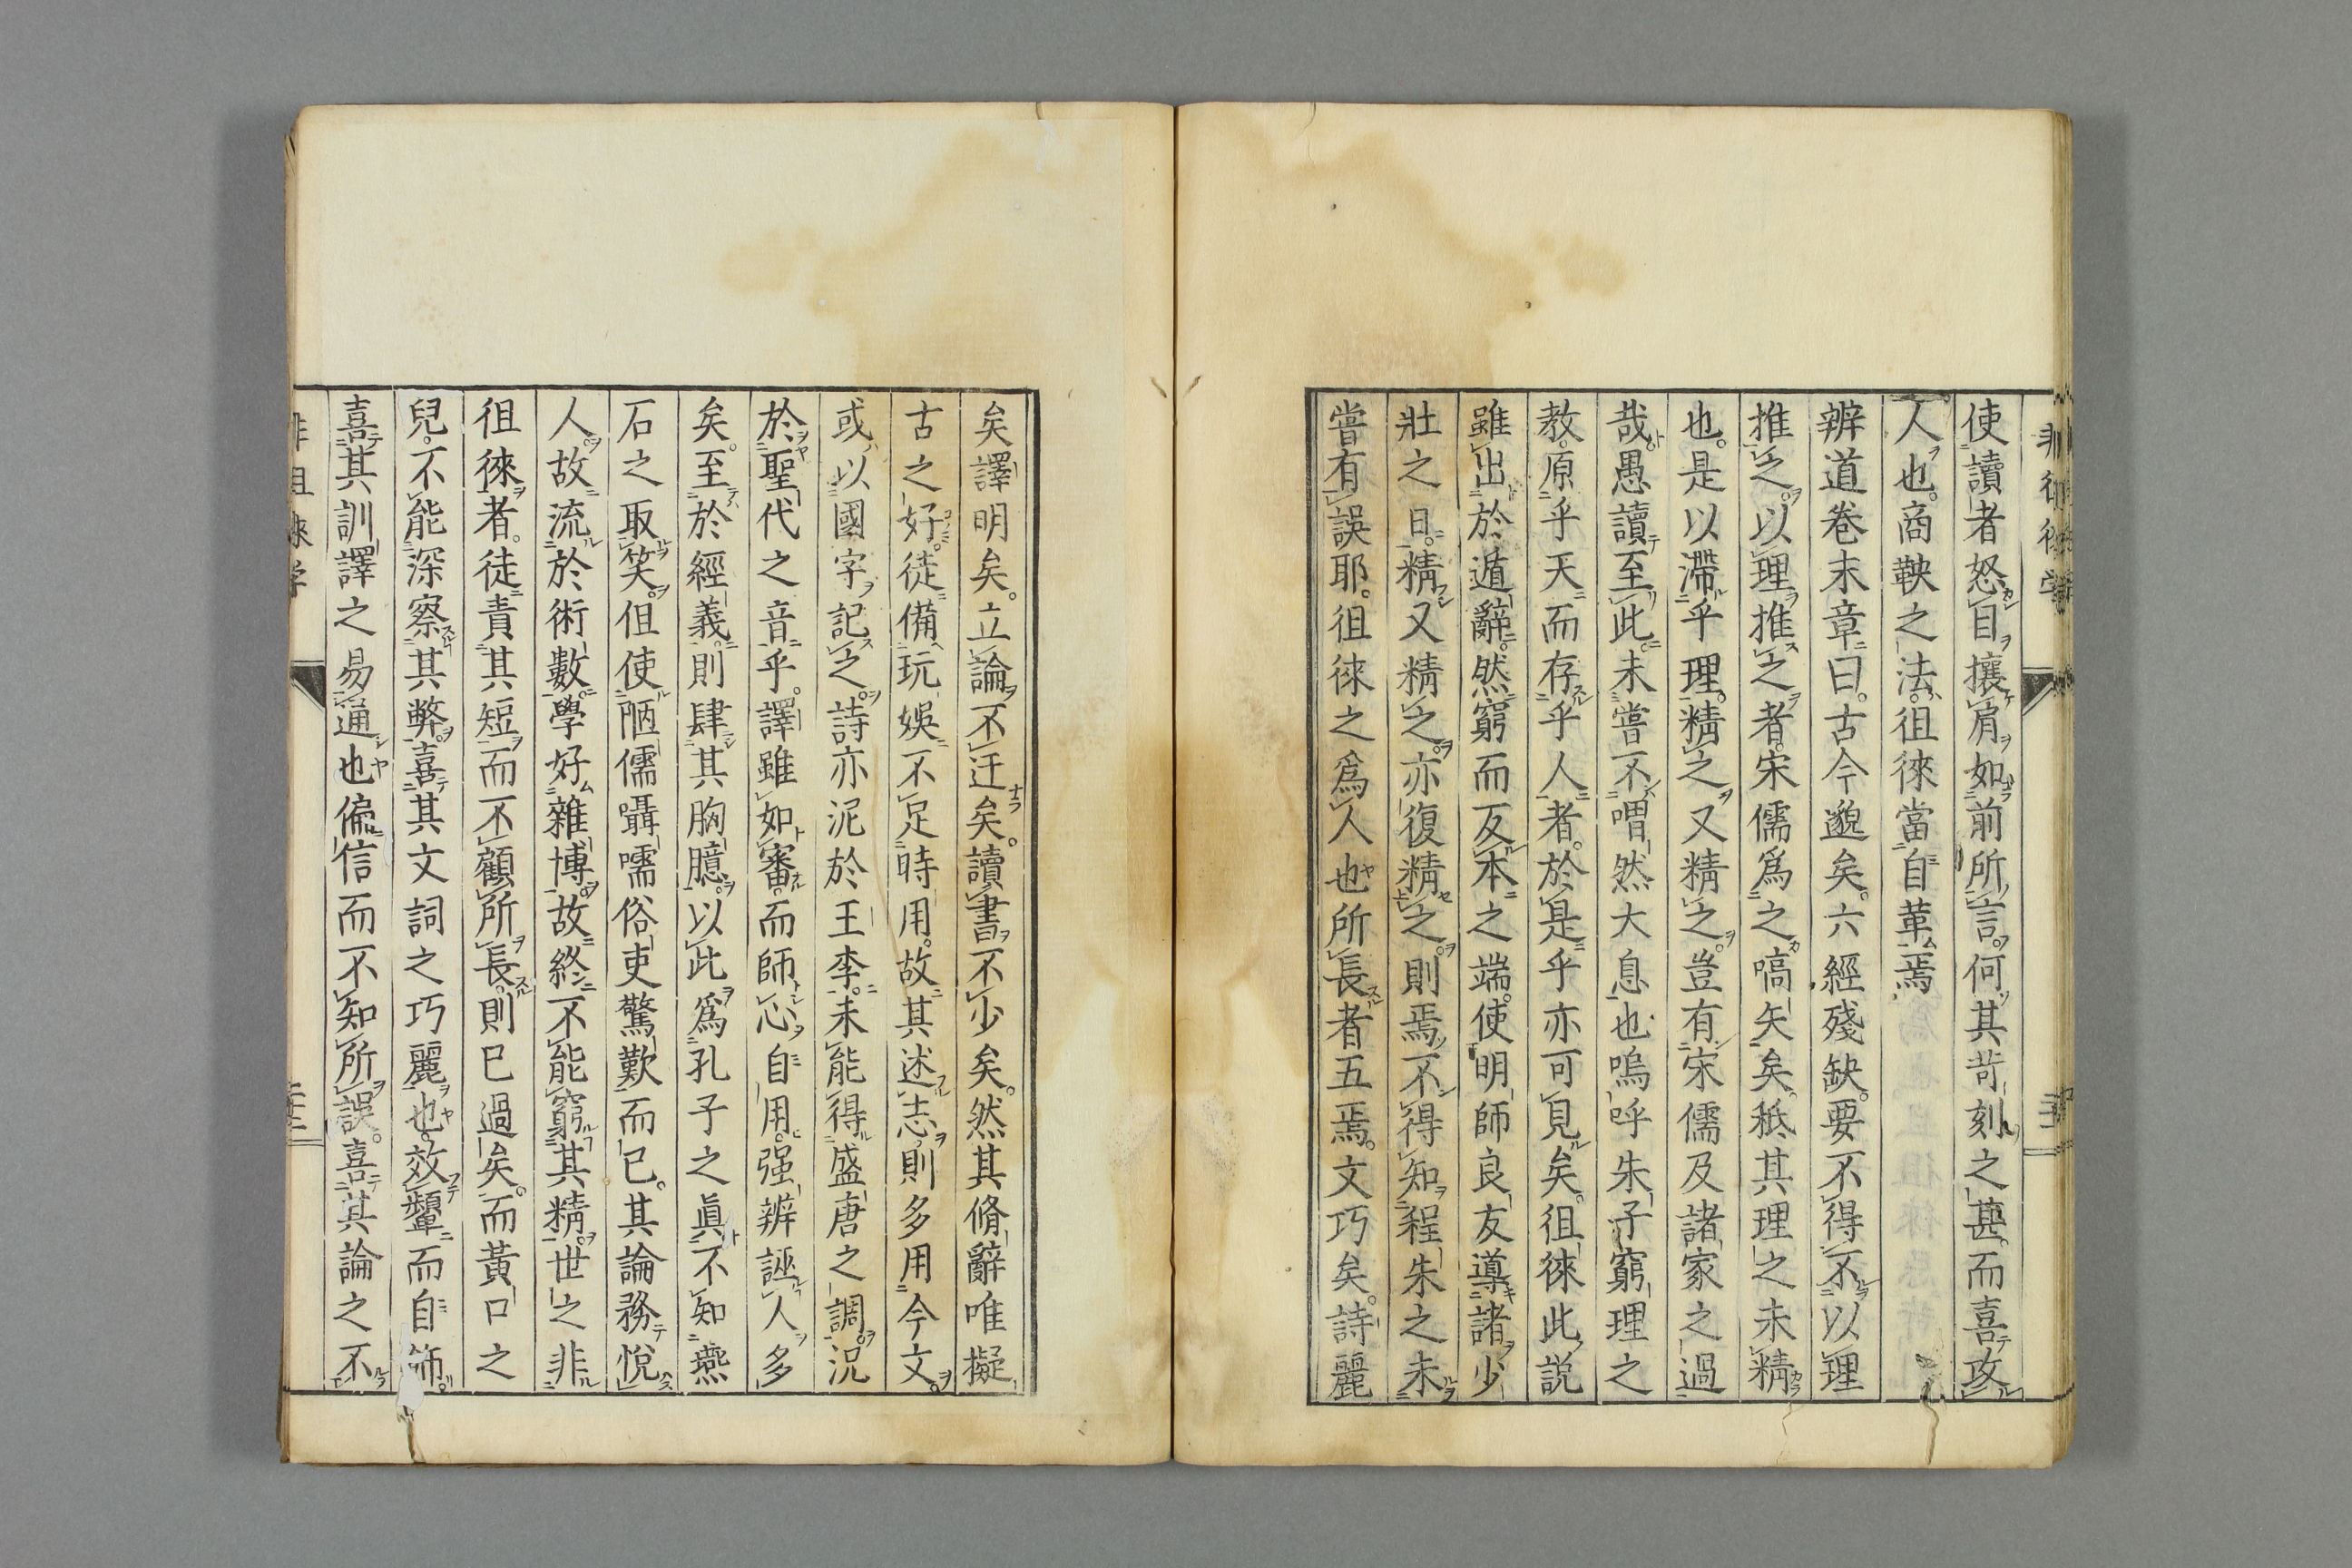 使讀者怒目攘肩如前所言何其苛刻之甚而喜攻
人也。商鞅之法。徂徠當自革焉
辨道卷末章曰。古今邈矣。六經殘缺。要不得不以理
推之。以理推之者。宋儒爲之嚆矢矣。秪其理之未精
也。是以滯乎理。精之又精之。豈有宋儒及諸家之過
哉。愚讀至此。未嘗不喟然大息也嗚呼朱子窮理之
教。原乎天而存乎人者。於是乎亦可見矣。徂徠此説
雖出於遁辭。然窮而反本之端。使明師良友導諸少
壯之日。精又精之。亦復精之。則焉不得知程朱之未
嘗有誤耶。徂徠之爲人也所長者五焉。文巧矣。詩麗
矣譯明矣。立論不迂矣。讀書不少矣。然其脩辭唯擬
古之好。徒備玩娯不足時用。故其述志則多用今文。
或以國字記之。詩亦泥於王李。未能得盛唐之調。況
於聖代之音乎。譯雖如審。而師心自用。强辨誣人多
矣。至於經義。則肆其胸臆。以此爲孔子之眞不知燕
石之取笑。但使陋儒囁嚅俗吏驚歎而已。其論務悅
人。故流於術數。學好雜博。故終不能窮其精。世之非
徂徠者。徒責其短而不顧所長。則已過矣。而黃口之
兒。不能深察其弊。喜其文詞之巧麗也。效顰而自飾。
喜其訓譯之易通也偏信而不知所誤。喜其論之不